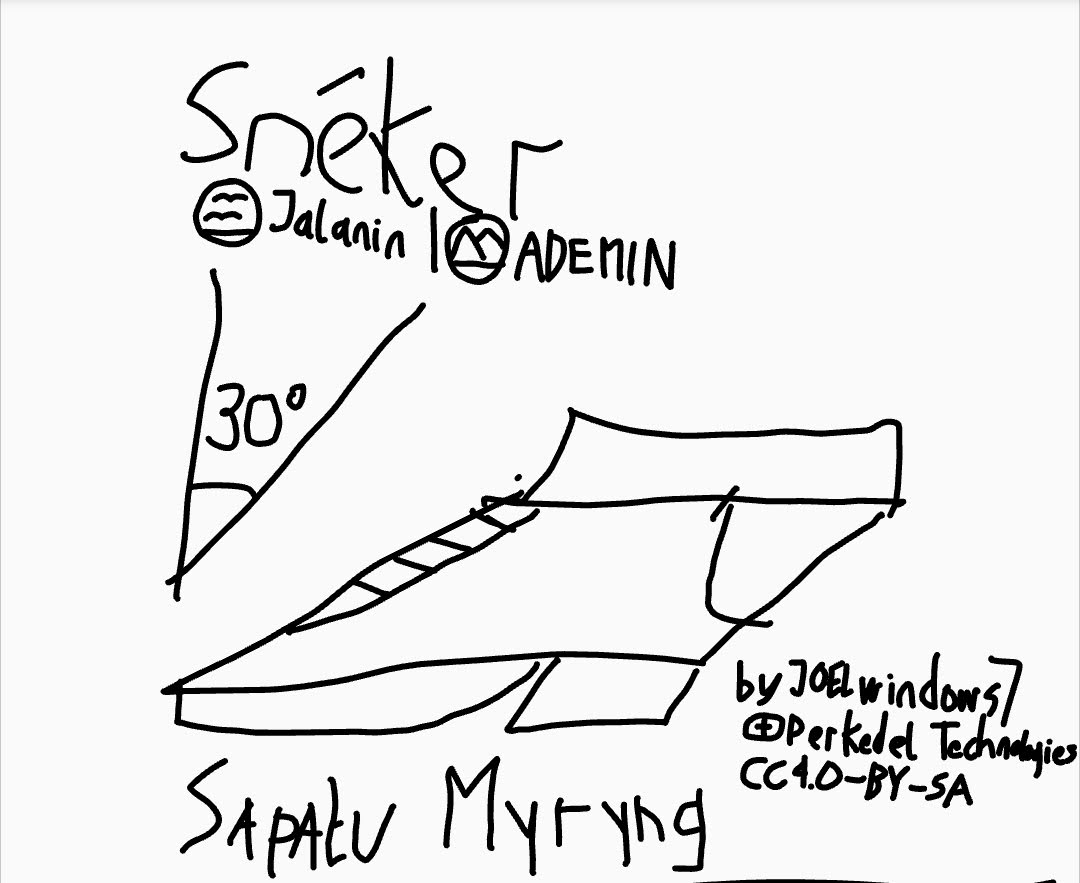 Snéker
Jalanin | ADEMIN
30°
by JOELwindows7
Perkedel Technologies
CC4.0-BY-SA
SAPAtU Myryng